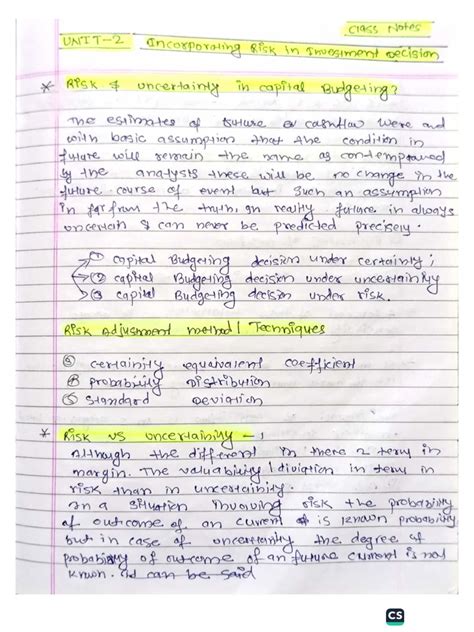 Class Notes
UNIT-2 Incorporating Risk in Investment Decision
* Risk & uncertainty in capital Budgeting?
The estimates of future or cashflow were and
with basic assumption that the condition in
future will remain the name as contempraved
by the analysts these will be no change in the
future course of event but such an assumption
in far from the truth, in reality future in always
uncertain & can never be predicted precisely.
① capital Budgeting decision under certainty;
② capital Budgeting decision under uncertainity
③ capital Budgeting decision under risk.
Risk Adjusment method | Techniques
certainity equivalent coefficient
probability Distribution
Standard Deviation
* Risk vs uncertainity - ;
Although the different in there 2 term in
margin. The valuability | diviation in term in
risk than in uncertainity.
In a situation involving risk the probability
of outcome of an current is known probability
but in case of uncertainty the degree of
probability of outcome of an future current is not
known. can be said
CS